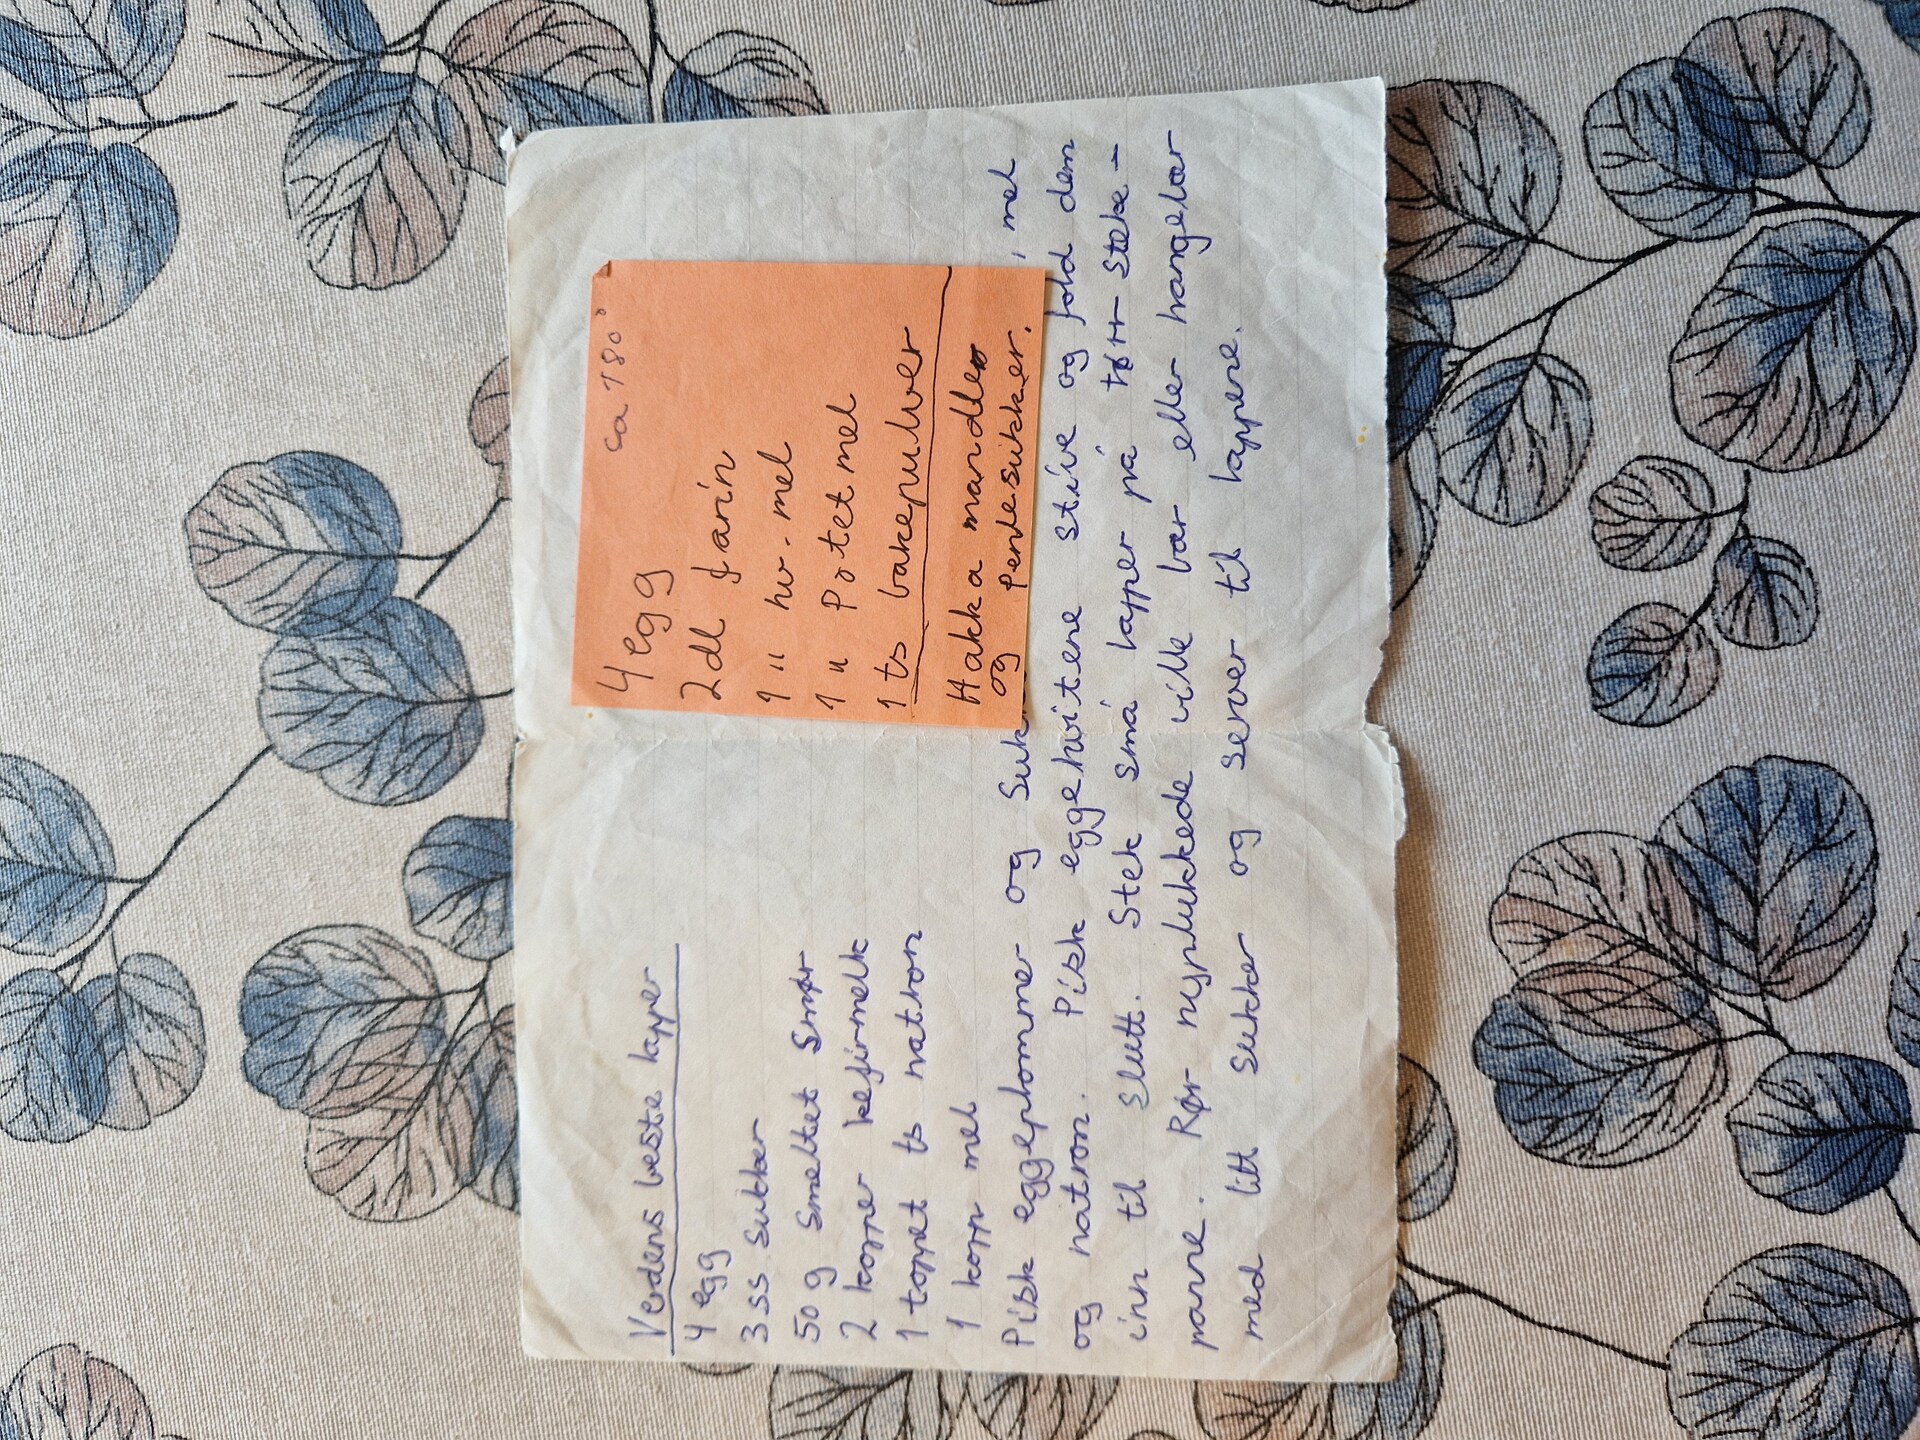 Verdens beste lapper
4 egg
3 ss sukker
50 g smeltet smør
2 kopper kefirmelk
1 toppet ts natron
1 kopp mel
Pisk eggeplommer og , mel
og natron. Pisk eggehvitene stive og fold dem
inn til slutt. Stek små lapper på tørr steke-
panne. Rør nyplukkede ville bær eller hangebær
med litt sukker og server til lappene.
ca 180°
4 egg
2 dl farin
1 " hv. mel
1 " Potetmel
1 ts bakepulver
Hakka mandler
og Perlesukker.